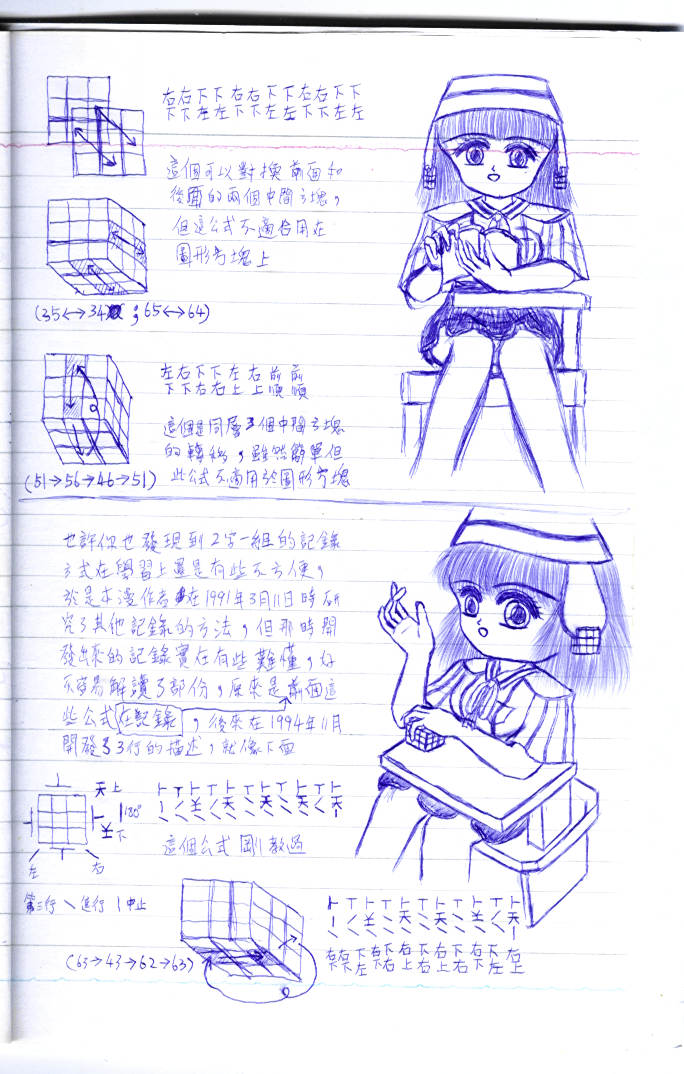 右右下下右右下下右右下下
下下左左下下左左下下左左
這個可以對換前面和
後面的兩個中間方塊,
但這公式不適合用在
圖形方塊上
(35↔34 ; 65↔64)
左右下下左右前前
下下右右上上順順
這個是同層3個中間方塊
的轉移,雖然簡單但
此公式不適用於圖形方塊
(51→56→46→51)
也許你也發現到2字一組的記錄
方式在學習上還是有些不方便,
於是本漫作者在1991年3月11日時研
究了其他記錄的方法,但那時開
發出來的記錄實在有些難懂,好
不容易解讀了部份,原來是前面這
些公式在記錄,後來在1994年11月
開發了3行的描述,就像下面
天上
180°
下
左
右
這個公式剛教過
第三行 \ 進行 | 中止
(63→43→62→63)